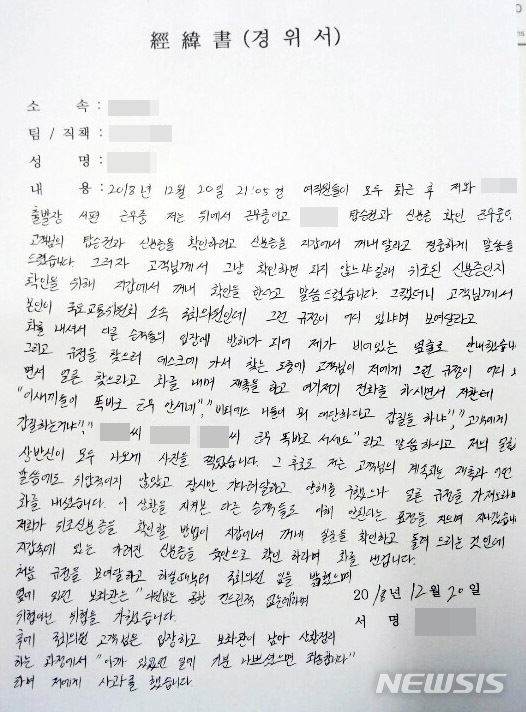 經 緯 書 (경 위 서)
소 속 :
팀 / 직책 :
성 명 :
내 용 : 2018년 12월 20일 21:05경 여직원들이 모두 퇴근 후 저와
출발장 서편 근무중 저는 뒤에서 근무중이고 탑승권과 신분증 확인 근무중에,
고객님의 탑승권과 신분증을 확인하려고 신분증을 지갑에서 꺼내달라고 정중하게 말씀을
드렸습니다. 그러자 고객님께서 그냥 확인하면 되지 않느냐길래 위조된 신분증인지
확인을 위해 지갑에서 꺼내 확인을 한다고 말씀드렸습니다. 그랬더니 고객님께서
본인이 국토교통위원회 소속 국회의원인데 그런 규정이 어디 있냐며 보여달라고
화를 내셔서 다른 승객들의 입장에 방해가 되어 제가 비어있는 옆쪽으로 안내했습니
그리고 규정을 찾으러 데스크에 가서 찾는 도중에 고객님이 저에게 그런 규정이 어디
면서 얼른 찾으라고 화를 내며 재촉을 하고 여기저기 전화를 하시면서 저한테
"이새끼들이 똑바로 근무 안서네", "너희들이 뭐 대단하다고 갑질을 하냐", "고객에게
갑질하는거냐", " 씨 씨 근무 똑바로 서세요" 라고 말씀하시고 저의 얼굴
상반신이 모두 나오게 사진을 찍었습니다. 그 후로도 저는 고객님의 계속되는 재촉과
말씀에도 잠시만 기다려달라고 양해를 구했으나 얼른 규정을 가져오라며
화를 내셨습니다. 이 상황을 지켜본 다른 승객들도 이해 안된다는 표정을 지으며 지나갔습니
저희가 위조신분증을 확인할 방법이 지갑에서 꺼내 실물을 확인하고 돌려 드리는 것인데
지갑속에 있는 가려진 신분증을 육안으로 확인 하라며 화를 내십니다.
처음 규정을 보여달라고 하실때부터 국회의원 임을 밝혔으며
옆에 있던 보좌관은 "의원님은 공항 건드린적 없는데"라며
위협아닌 위협을 가했습니다.
후에 국회의원 고객님은 입장하고 보좌관이 남아 상황정리
하는 과정에서 "아까 있었던 일에 기분 나쁘셨으면 죄송합니다"
라며 저에게 사과를 했습니다.
2018년 12월 20일
서 명
NEWSIS